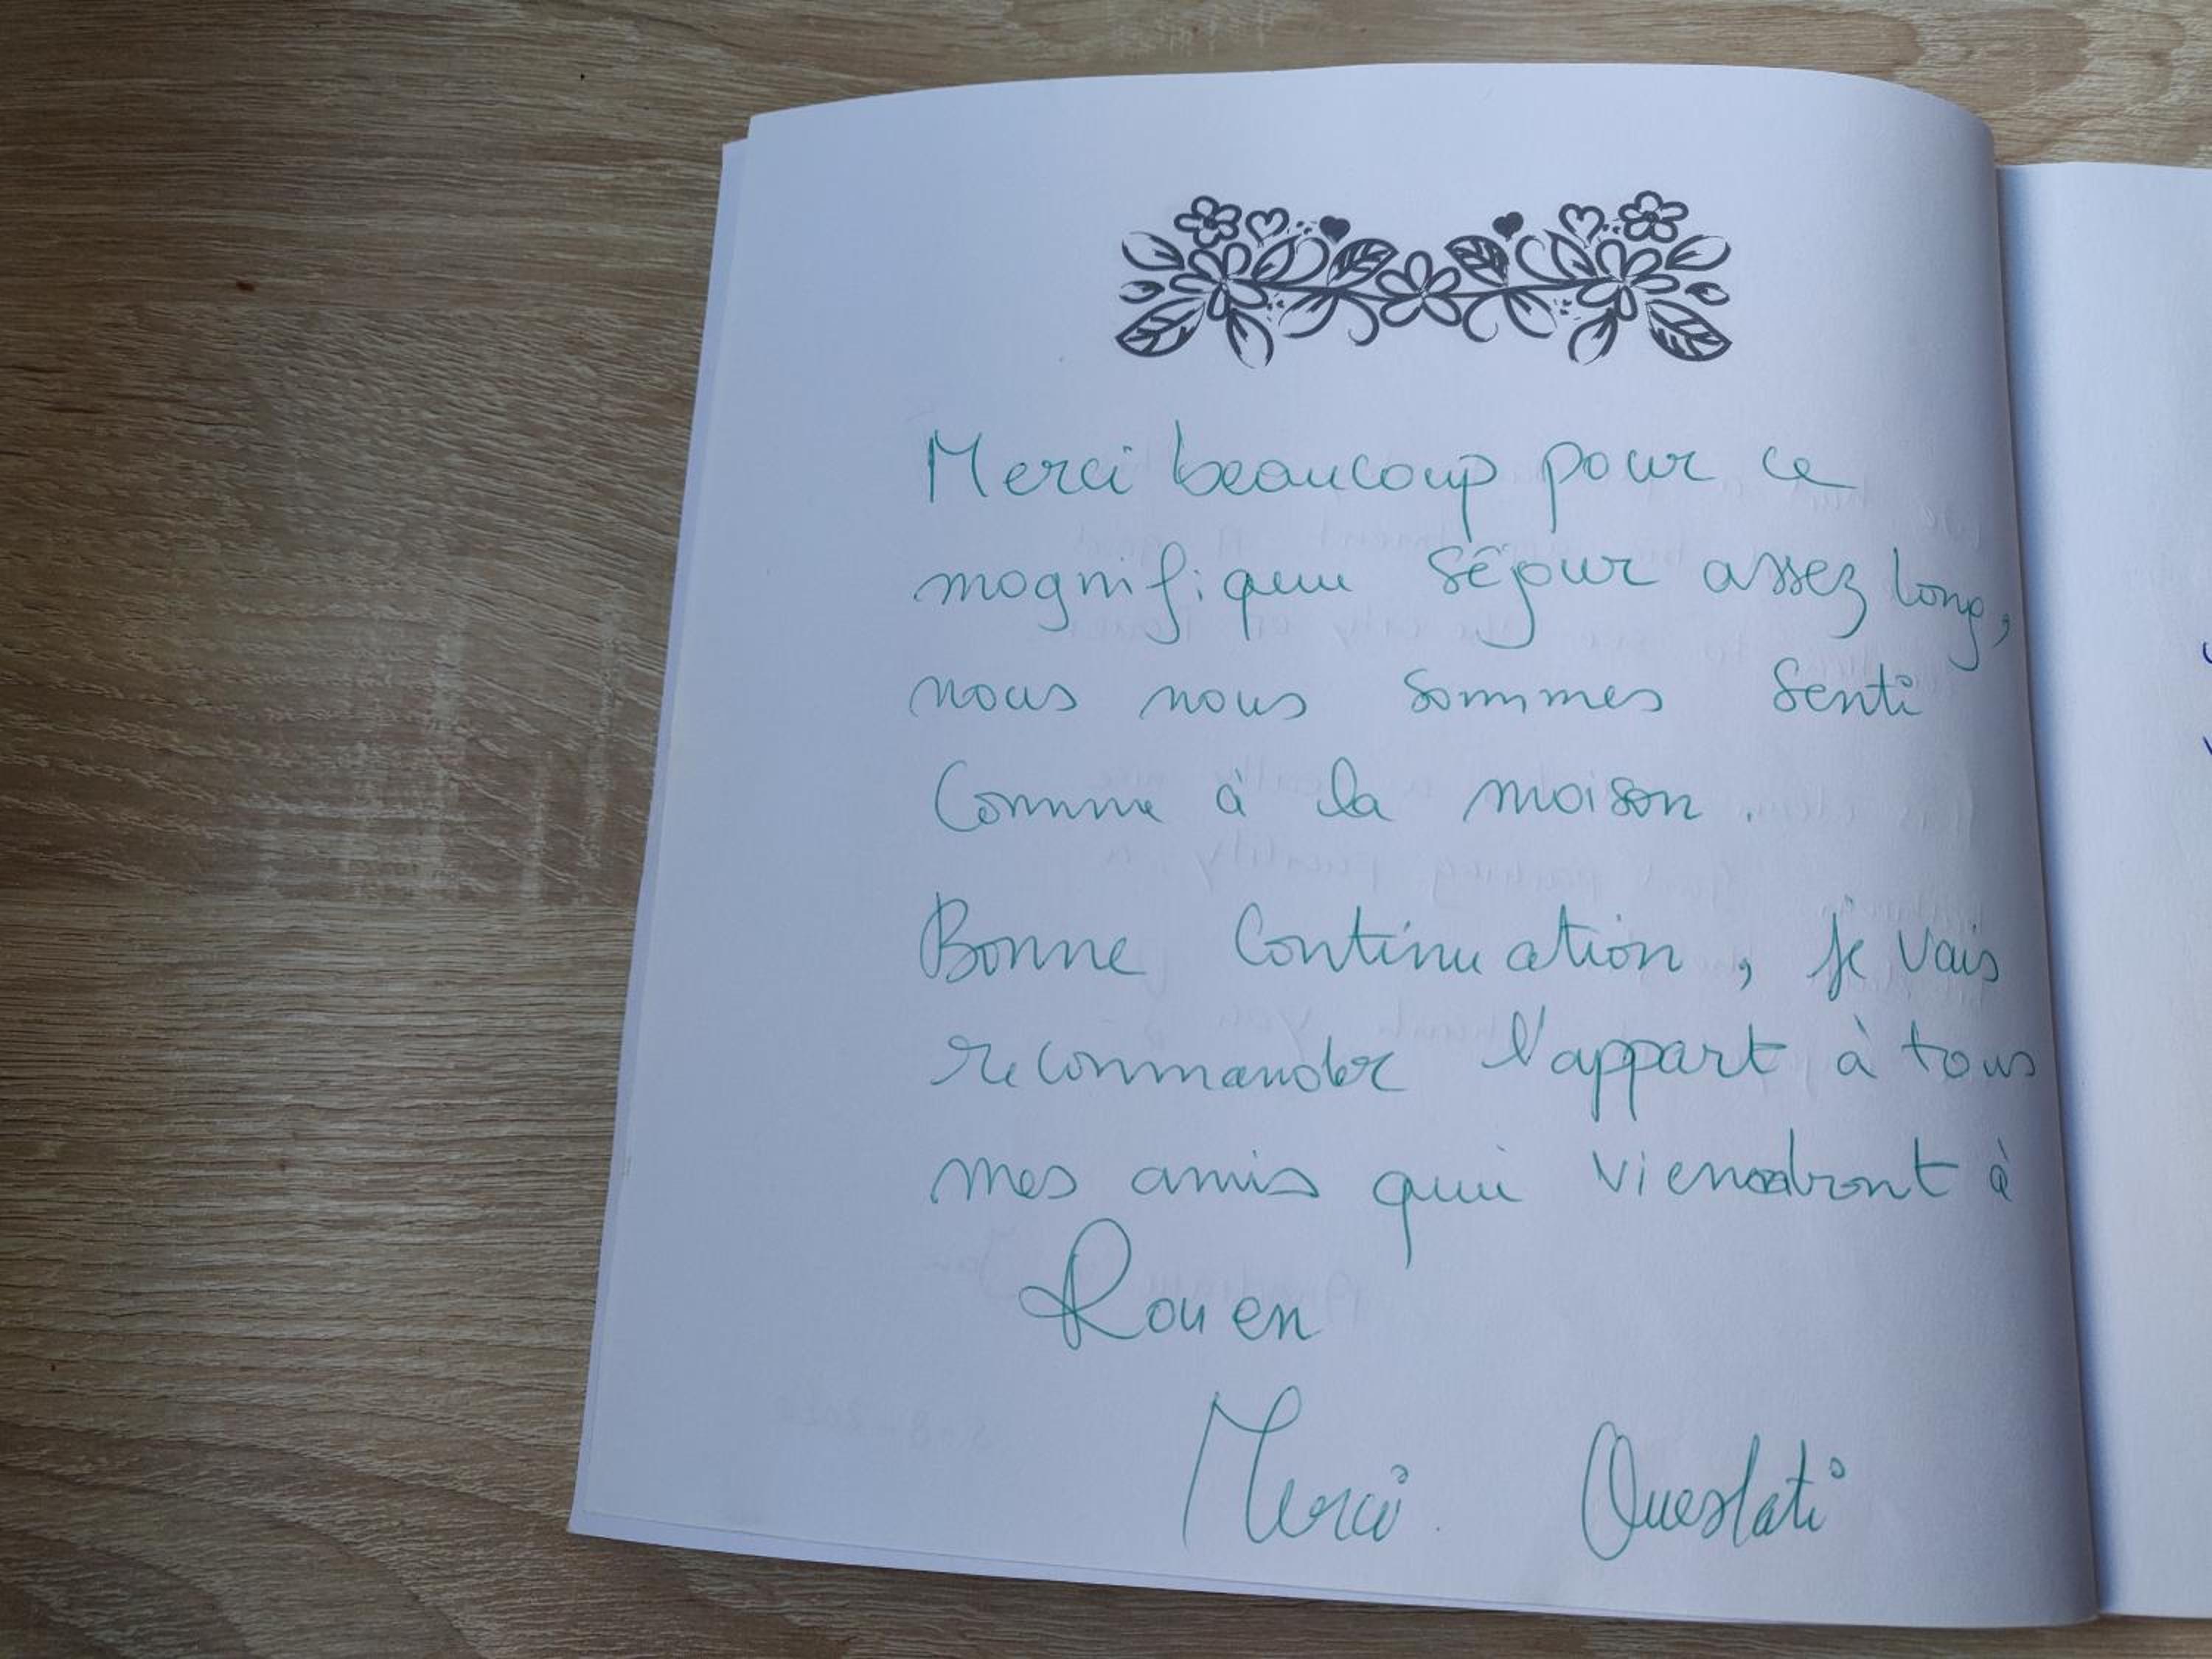 Merci beaucoup pour ce
magnifique séjour assez long,
nous nous sommes senti
Comme à la maison.
Bonne Continuation, je vais
recommander l'appart à tous
mes amis qui viendront à
Rouen
Merci. Oueslati